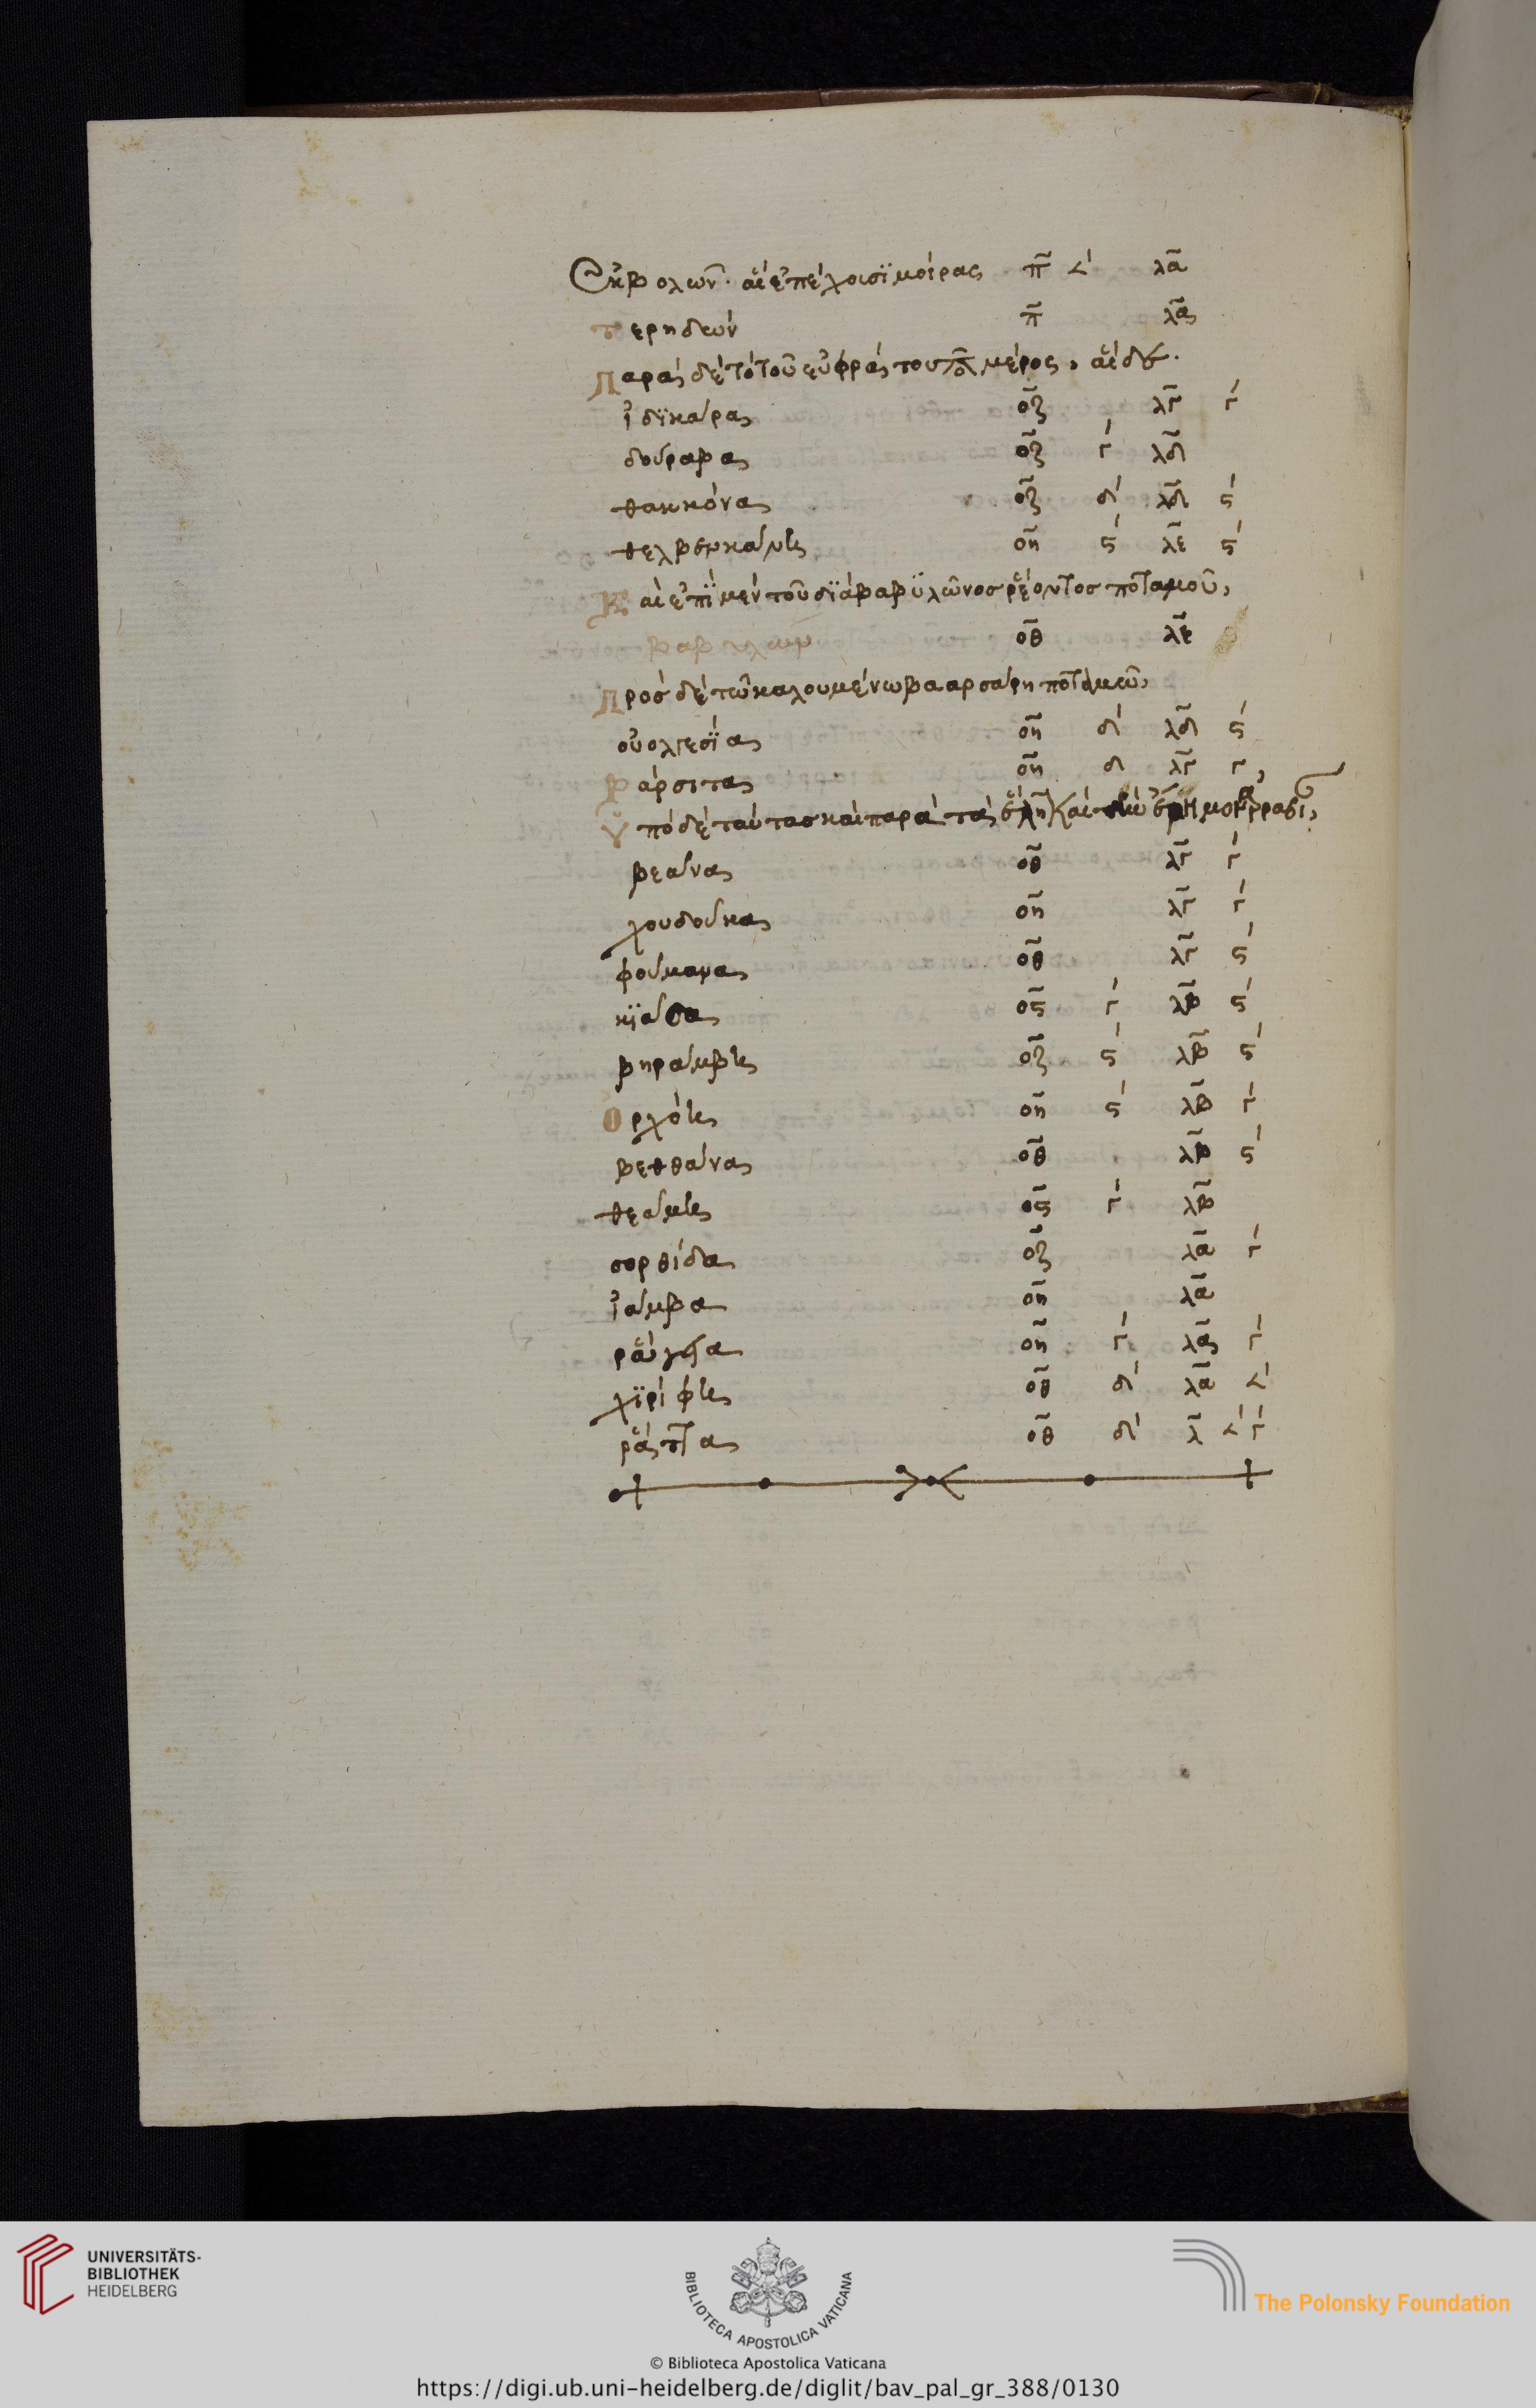 ἐκβολῶν· αἳ ἐπέχουσι μοίρας π ∠ λα
τερηδών π λα
Παρὰ δὲ τὸ τοῦ εὐφράτου μέρος, αἵδε.
ἰδικάρα οζ λγ γ
δούραβα οζ γ λδ
θακκόνα οζ δ λδ ς
θελβεγκάνη οη ς λε ς
Καὶ ἐπὶ μὲν τοῦ διὰ βαβυλῶνος ῥέοντος ποταμοῦ,
βαβυλών οθ λε
Πρὸς δὲ τῶ καλουμένω βααρσάρη ποταμῶ,
οὐολγεσία οη δ λδ ς
βάρσιτα οη δ λγ γ
Ὑπὸ δὲ ταύτας καὶ παρὰ τὰ ἕλη καὶ τὴν ἔρημον ἀραβίαν
βεάνα οθ λγ γ
χουδούκα οη λγ γ
φούμαμα οθ λγ ς
κίασα ος γ λβ ς
βηράμβη οζ ς λβ ς
Ὀρχόη οη ς λβ γ
βεθθάνα οθ λβ ς
θεάμη ος γ λβ
σορθίδα οζ λα γ
ἰάμβα οη λα
ῥάγεια οη γ λα γ
χιρίφη οθ δ λα ∠
ῥάττα οθ δ λ ∠ γ
UNIVERSITÄTS-
BIBLIOTHEK
HEIDELBERG
BIBLIOTECA APOSTOLICA VATICANA
The Polonsky Foundation
© Biblioteca Apostolica Vaticana
https://digi.ub.uni-heidelberg.de/diglit/bav_pal_gr_388/0130